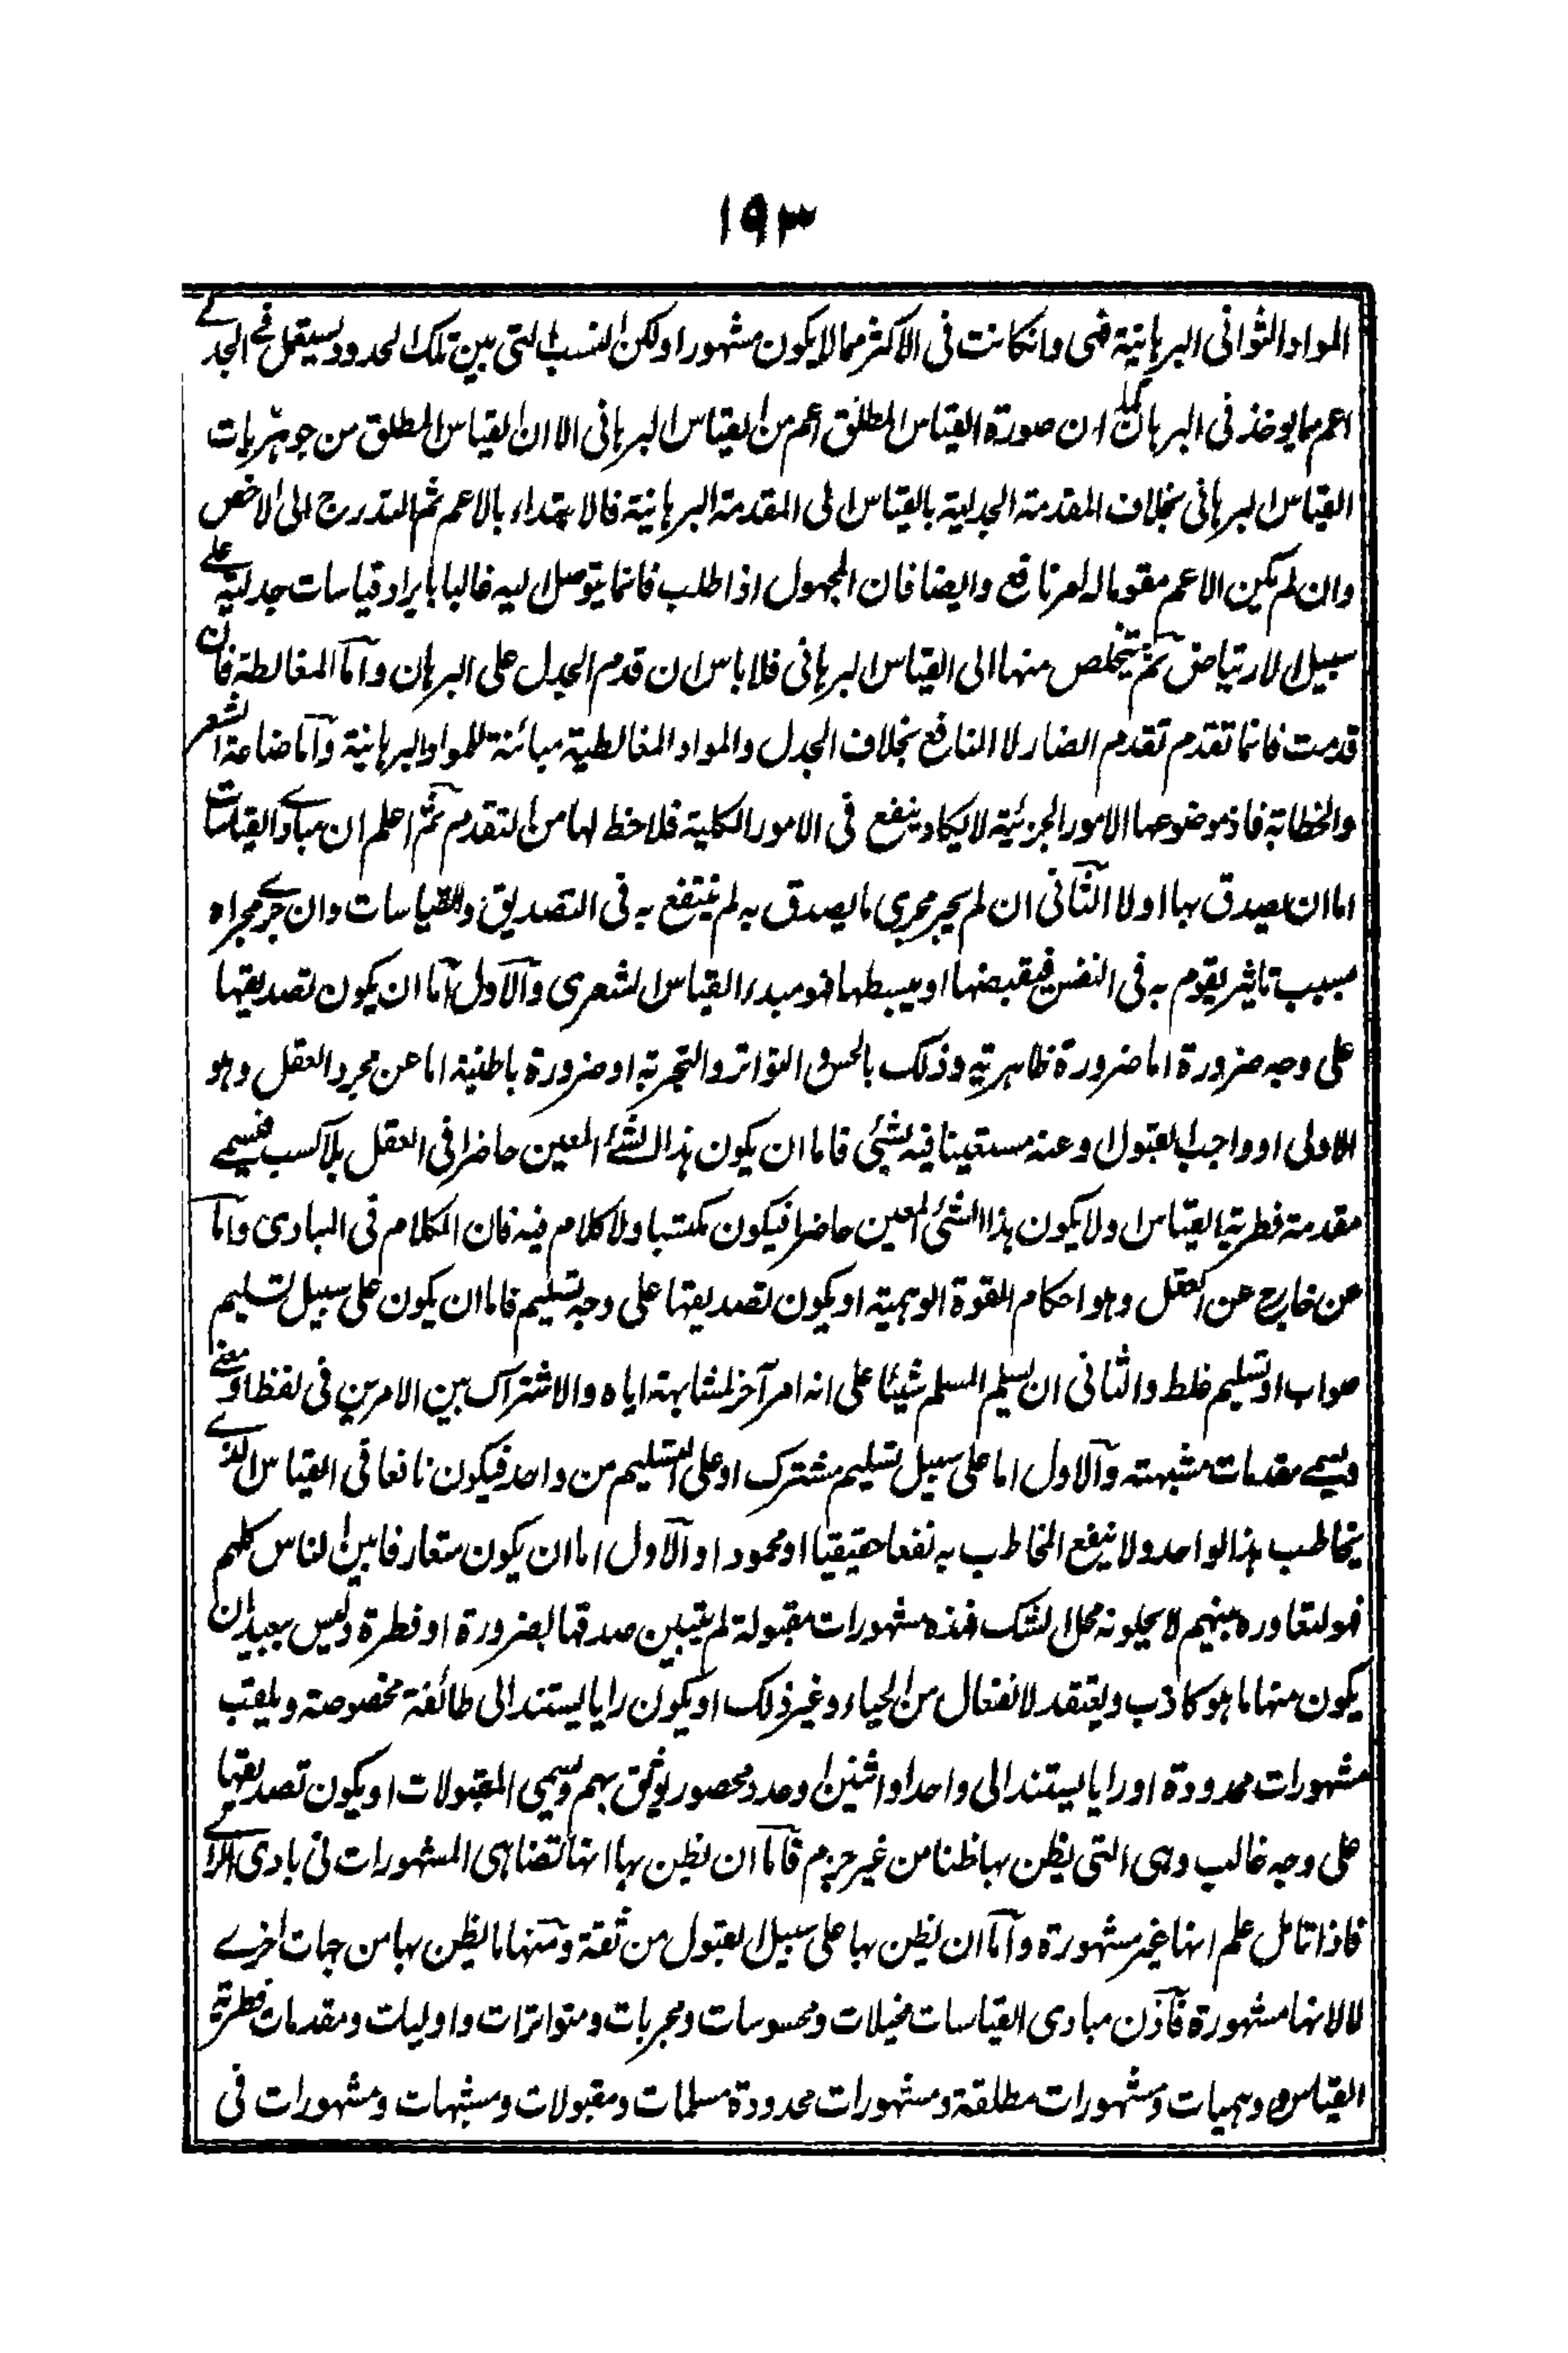 ١٩٣
المواد الثوانی البرہانیۃ فہی وانکانت فی الاکثر مما لا یکون مشہورا ولکن النسب التی بین تلک الحدود یستعمل فے الجدلے
اعم مما یوخذ فی البرہان کما ان صورۃ القیاس المطلق اعم من القیاس البرہانی الا ان القیاس المطلق من جوہریات
القیاس البرہانی بخلاف المقدمۃ الجدلیۃ بالقیاس الی المقدمۃ البرہانیۃ فالابتداء بالاعم ثم التدرج الی الاخص
وان لم یکن الاعم مقوما لہ امر نافع وایضا فان المجہول اذا طلب فانما یتوصل الیہ غالبا بایراد قیاسات جدلیۃ علے
سبیل الارتیاض ثم یتخلص منہا الی القیاس البرہانی فلا باس ان قدم الجدل علی البرہان واما المغالطۃ فان
قدمت فانما تقدم تقدم الضار لا النافع بخلاف الجدل والمواد المغالطیۃ مبائنۃ للمواد البرہانیۃ واما صناعۃ الشعر
والخطابۃ فاذ موضوعہا الامور الجزئیۃ لا یکاد ینفع فی الامور الکلیۃ فلا حظ لہا من التقدم ثم اعلم ان مبادے القیاسات
اما ان یصدق بہا اولا الثانی ان لم یجر مجری ما یصدق بہ لم ینتفع بہ فی التصدیق والقیاسات وان جرے مجراہ
بسبب تاثیر یقوم بہ فی النفس فیقبضہا او یبسطہا فہو مبدء القیاس الشعری والاول اما ان یکون تصدیقہا
علی وجہ ضرورۃ اما ضرورۃ ظاہریۃ وذلک بالحس والتواتر والتجربۃ او ضرورۃ باطنیۃ اما عن مجرد العقل وہو
الاولی او واجب القبول او عنہ مستعینا فیہ بشئی فاما ان یکون ہذا الشئے المعین حاضرا فی العقل بلا کسب فیسمے
مقدمۃ فطریۃ القیاس او لا یکون ہذا الشئی المعین حاضرا فیکون مکتسبا ولا کلام فیہ فان الکلام فی المبادی واما
عن خارج عن العقل وہو احکام القوۃ الوہمیۃ او یکون تصدیقہا علی وجہ تسلیم فاما ان یکون علی سبیل تسلیم
صواب او تسلیم غلط والثانی ان یسلم المسلم شیئا علی انہ امر آخر لمشابہتہ ایاہ والاشتراک بین الامرین فی لفظ او معنے
ویسمے مقدمات مشبہتہ والاول اما علی سبیل تسلیم مشترک او علی التسلیم من واحد فیکون نافعا فی القیاس الذے
یخاطب بہذا الواحد ولا ینفع المخاطب بہ نفعا حقیقیا او محمودا والاول اما ان یکون متعارفا بین الناس کلہم
فہو لتعاورہ بینہم لا یحلونہ محل الشک فہذہ مشہورات مقبولۃ لم یتبین صدقہا بضرورۃ او فطرۃ ولیس ببعید ان
یکون منہا ما ہو کاذب ویعتقد لانفعال من الحیاء وغیر ذلک او یکون رایا یستند الی طائفۃ مخصوصۃ ویلقب
مشہورات محدودۃ او رایا یستند الی واحد او اثنین او عدد محصور یوثق بہم ویسمی المقبولات او یکون تصدیقہا
علی وجہ غالب وہی التی یظن بہا ظنا من غیر جزم فاما ان یظن بہا انہا تضاہی المشہورات فی بادی الراے
فاذا تامل علم انہا غیر مشہورۃ واما ان یظن بہا علی سبیل القبول من ثقۃ ومنہا ما یظن بہا من جہات اخرے
لا لانہا مشہورۃ فاذن مبادی القیاسات مخیلات ومحسوسات ومجربات ومتواترات واولیات ومقدمات فطریۃ
القیاس ووہمیات ومشہورات مطلقۃ ومشہورات محدودۃ مسلمات ومقبولات ومشبہات ومشہورات فی